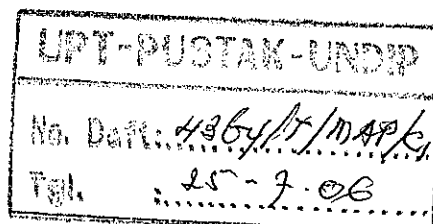 UPT-PUSTAK-UNDIP
No. Daft: 4364/T/MAP/C1
Tgl. : 25-7-06